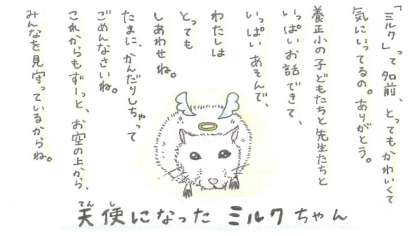 「ミルク」って名前、とってもかわいくて
気にいってるの。ありがとう。
養正小の子どもたちと先生たちと
いっぱいお話できて、
いっぱいあそんで、
わたしは
とっても
しあわせね。
たまに、かんだりしちゃって
ごめんなさいね。
これからもずーっと、お空の上から、
みんなを見守っているからね。
天使になった ミルクちゃん
てんし